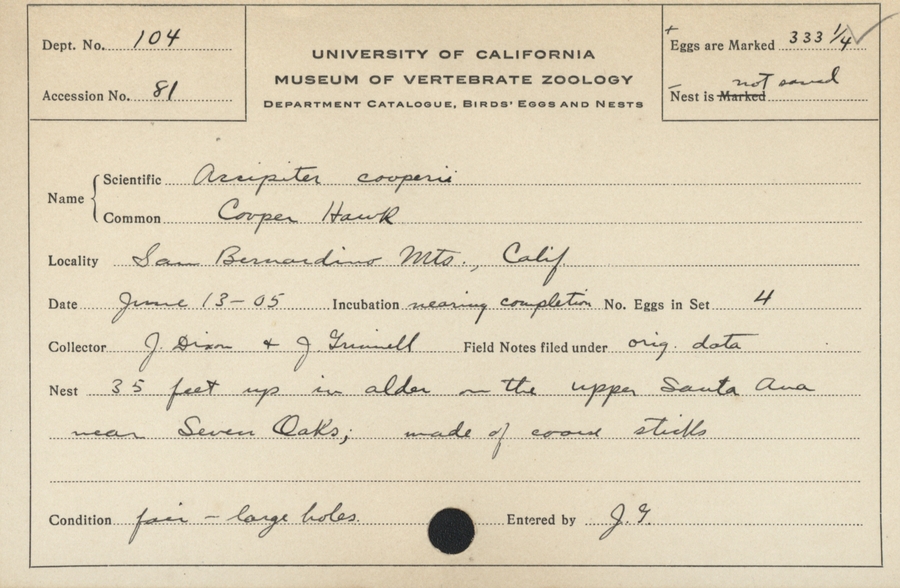 Dept. No. 104
Accession No. 81
UNIVERSITY OF CALIFORNIA
MUSEUM OF VERTEBRATE ZOOLOGY
DEPARTMENT CATALOGUE, BIRDS' EGGS AND NESTS
+
Eggs are Marked 333 1/4
Nest is Marked not saved
Name
Scientific Accipiter cooperi
Common Cooper Hawk
Locality San Bernardino Mts., Calif.
Date June 13-05 Incubation nearing completion No. Eggs in Set 4
Collector J. Dixon & J. Grinnell Field Notes filed under orig. data
Nest 35 feet up in alder on the upper Santa Ana
near Seven Oaks; made of coarse sticks
Condition fair - large holes. Entered by J.G.